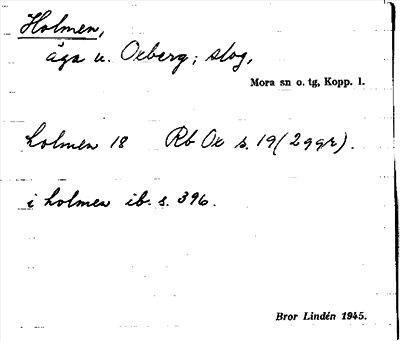 Holmen,
äga u. Oxberg; slog,
Mora sn o. tg, Kopp. l.
holmen 18 Rb Ox s. 19 (2 ggr).
i holmen ib. s. 396.
Bror Lindén 1945.